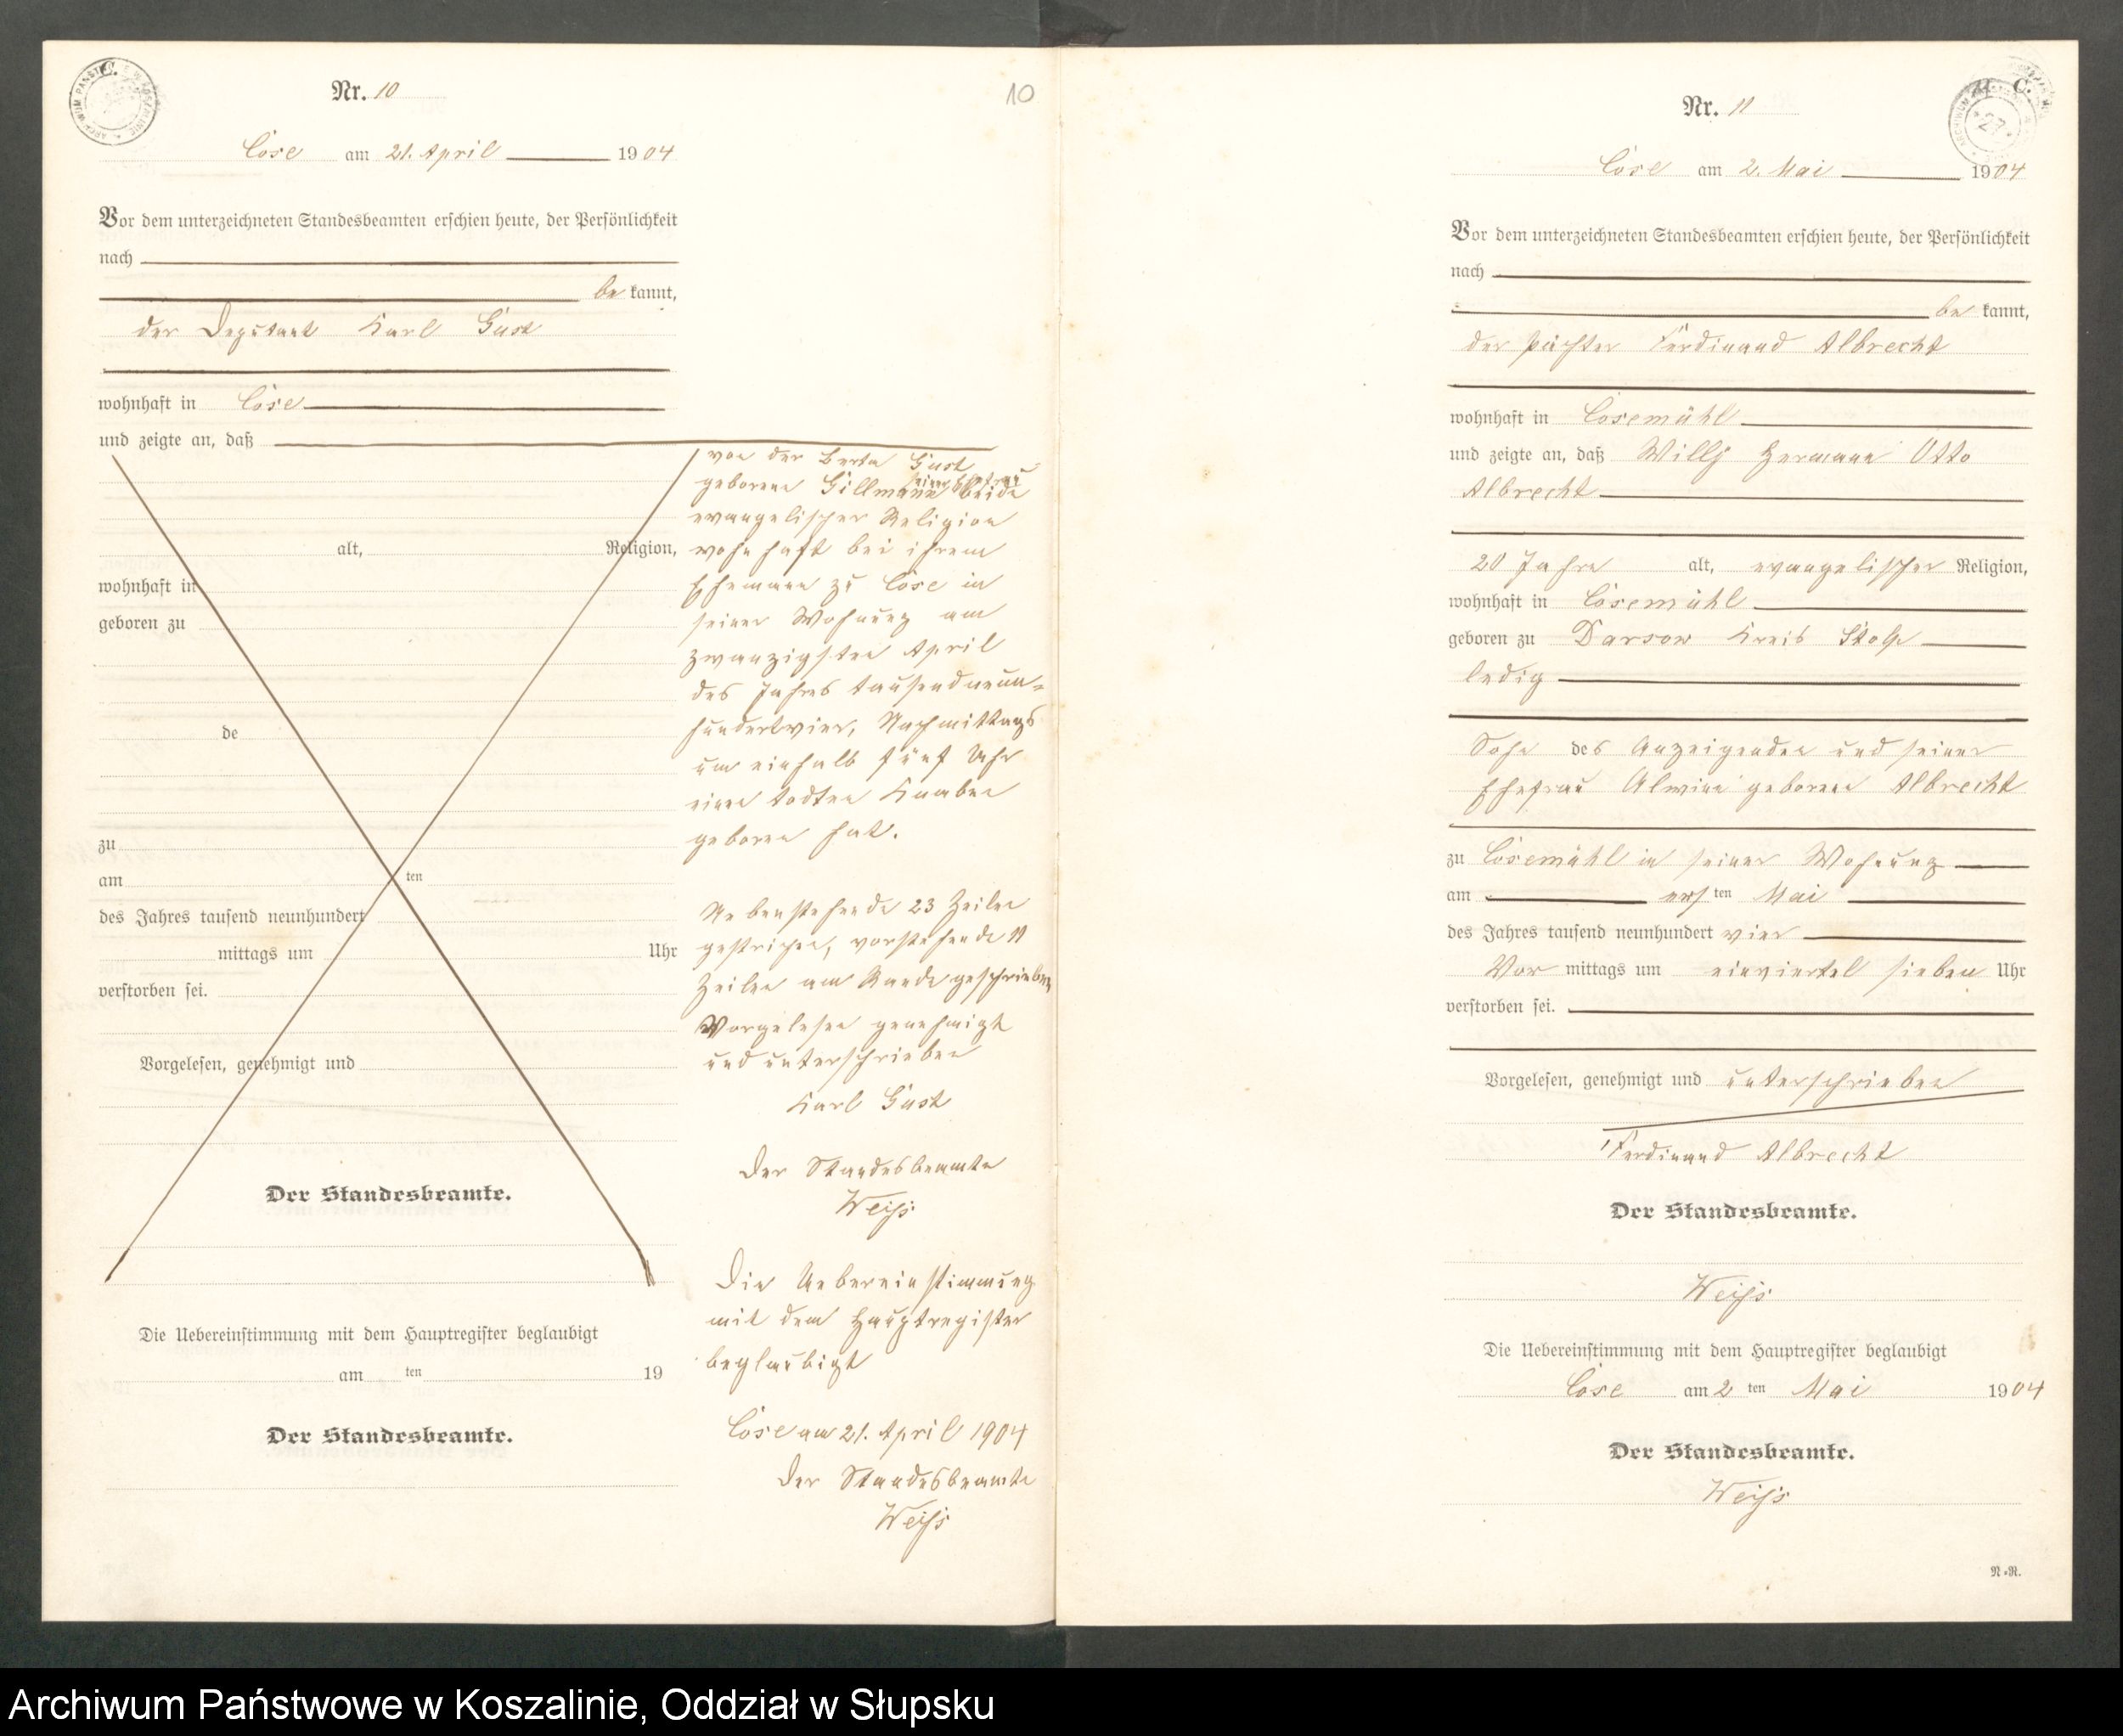 C.
Nr. 10
10
Cose am 21. April 1904
Vor dem unterzeichneten Standesbeamten erschien heute, der Persönlichkeit
nach
be kannt,
der Deputant Karl Gust
wohnhaft in Cose
und zeigte an, daß
alt, Religion,
wohnhaft in
geboren zu
de
zu
am ten
des Jahres tausend neunhundert
mittags um Uhr
verstorben sei.
Vorgelesen, genehmigt und
Der Standesbeamte.
Die Uebereinstimmung mit dem Hauptregister beglaubigt
am ten 19
Der Standesbeamte.
von der Berta Gust
geborene Gillmann seiner Ehefrau beide
evangelischer Religion
wohnhaft bei ihrem
Ehemann zu Cose in
seiner Wohnung am
zwanzigsten April
des Jahres tausendneun-
hundertvier, Nachmittags
um einhalb fünf Uhr
einen todten Knaben
geboren hat.
Nebenstehende 23 Zeilen
gestrichen, vorstehende 11
Zeilen am Rande geschrieben
Vorgelesen genehmigt
und unterschrieben
Karl Gust
Der Standesbeamte
Weiss
Die Uebereinstimmung
mit dem Hauptregister
beglaubigt
Cose am 21. April 1904
Der Standesbeamte
Weiss
C.
Nr. 11
Cose am 2. Mai 1904
Vor dem unterzeichneten Standesbeamten erschien heute, der Persönlichkeit
nach
be kannt,
der Pächter Ferdinand Albrecht
wohnhaft in Cosemühl
und zeigte an, daß Willy Hermann Otto
Albrecht
20 Jahre alt, evangelischer Religion,
wohnhaft in Cosemühl
geboren zu Darsow Kreis Stolp
ledig
Sohn des Anzeigenden und seiner
Ehefrau Alwine geborene Albrecht
zu Cosemühl in seiner Wohnung
am ersten Mai
des Jahres tausend neunhundert vier
Vor mittags um einviertel sieben Uhr
verstorben sei.
Vorgelesen, genehmigt und unterschrieben
Ferdinand Albrecht
Der Standesbeamte.
Weiss
Die Uebereinstimmung mit dem Hauptregister beglaubigt
Cose am 2 ten Mai 1904
Der Standesbeamte.
Weiss
N.R.
Archiwum Państwowe w Koszalinie, Oddział w Słupsku